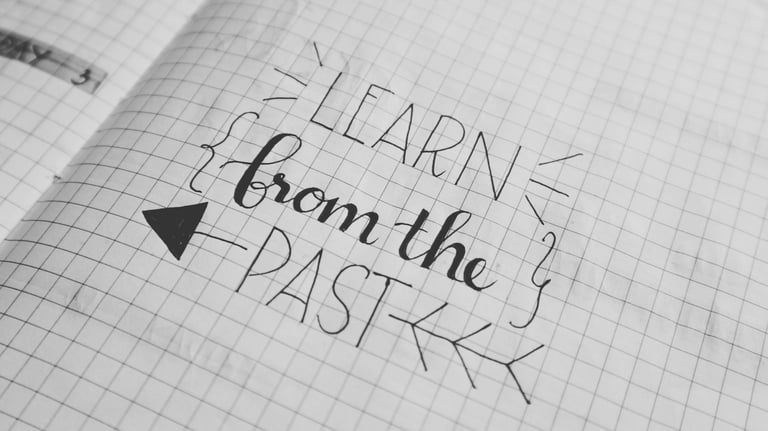 DAY 3
LEARN
{from the}
PAST